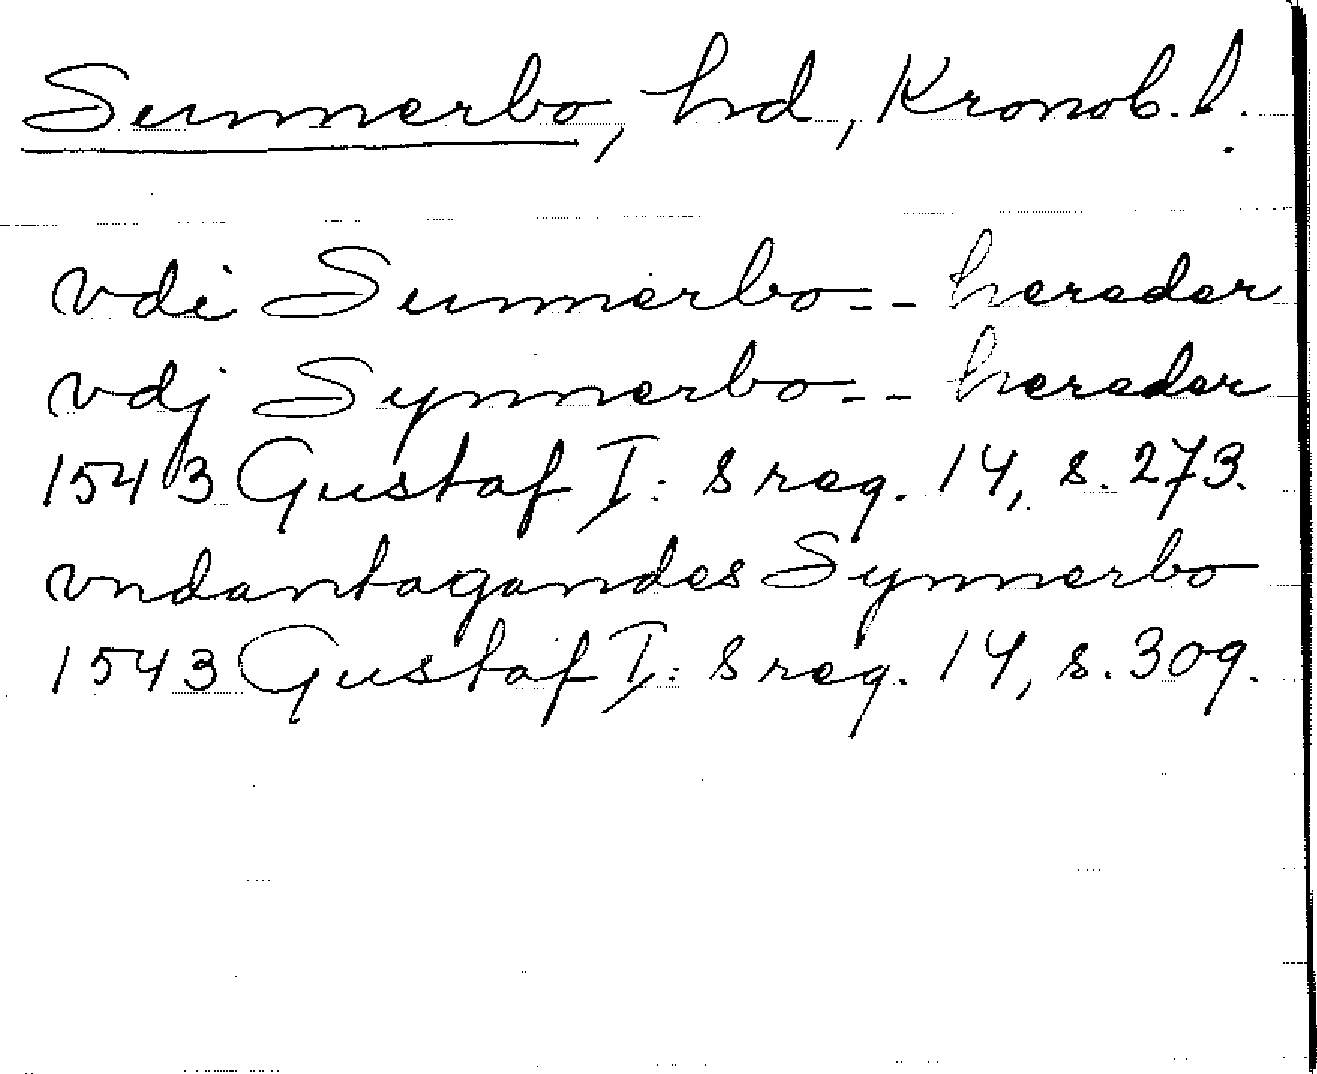 Sunnerbo, hd, Kronob. l.
vdi Sunnerbo -- hereder
vdj Synnerbo -- hereder
1543 Gustaf I:s reg. 14, s. 273.
vndantagandes Synnerbo
1543 Gustaf I:s reg. 14, s. 309.